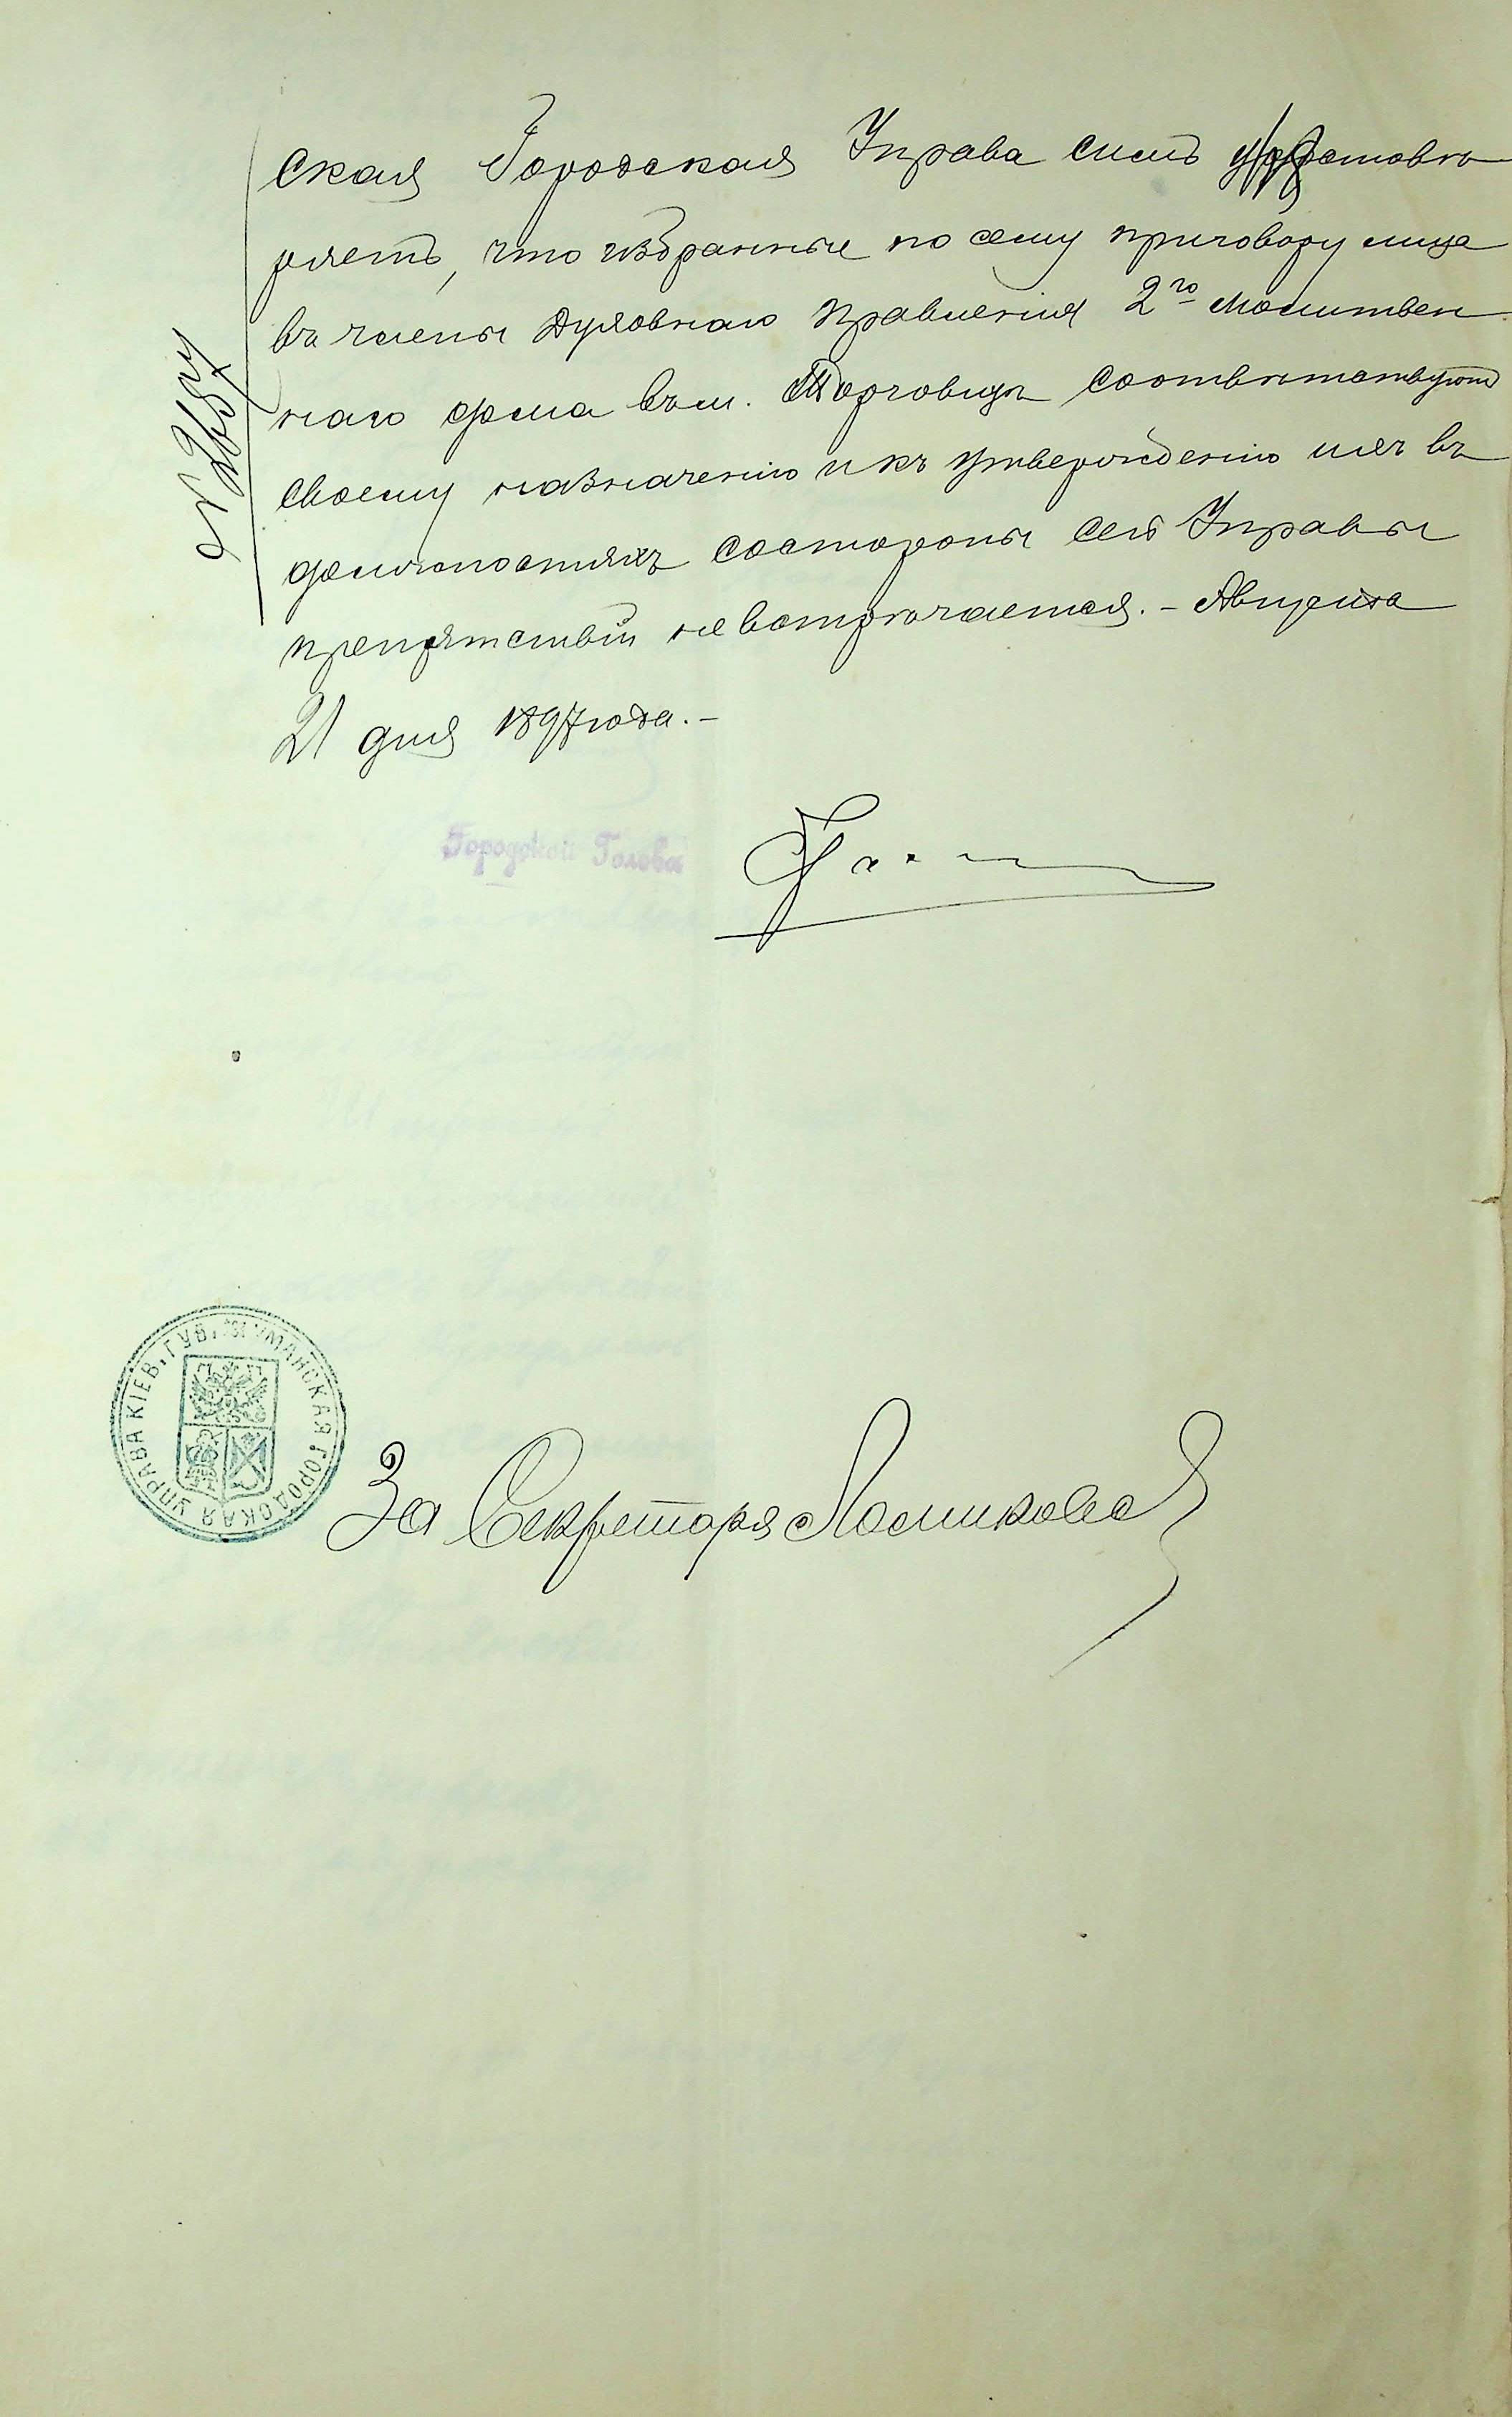 ская Городская Управа симъ удостовѣ
ряетъ, что избранные по сему приговору лица
въ члены Духовнаго Правленія 2го Молитвен
наго дома въ м. Торговицѣ соотвѣтствуютъ
своему назначенію и къ утвержденію ихъ въ
должностяхъ состороны сей Управы
препятствій невстрѣчается. – Августа
21 дня 1897 года. –
Городской Голова
УМАНСКАЯ ГОРОДСКАЯ УПРАВА КІЕВ. ГУБ.
За Секретаря